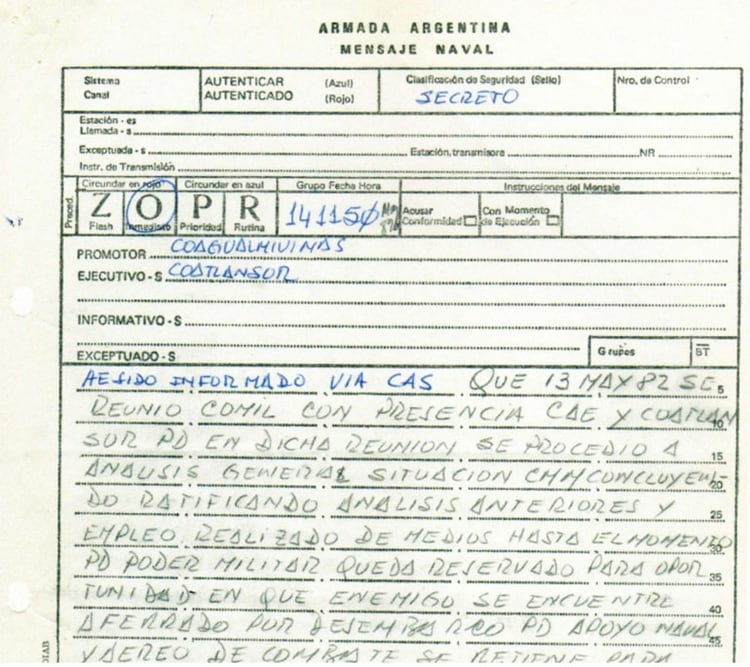 ARMADA ARGENTINA
MENSAJE NAVAL
Sistema
Canal
AUTENTICAR (Azul)
AUTENTICADO (Rojo)
Clasificación de Seguridad (Sello)
SECRETO
Nro. de Control
Estación - es
Llamada - s
Exceptuada - s Estación transmisora NR
Instr. de Transmisión
Preced.
Circundar en rojo Circundar en azul Grupo Fecha Hora Instrucciones del Mensaje
Z O P R
Flash Inmediato Prioridad Rutina
141150
Acusar Conformidad
Con Momento de Ejecución
PROMOTOR COAGUALMIVINAS
EJECUTIVO - S COATLANSUR
INFORMATIVO - S
EXCEPTUADO - S
Grupos BT
HE SIDO INFORMADO VIA CAS QUE 13 MAY 82 SE 5
REUNIO COMIL CON PRESENCIA CAE Y COATLAN 10
SUR PD EN DICHA REUNION SE PROCEDIO A 15
ANALISIS GENERAL SITUACION CMM CONCLUYEN- 20
DO RATIFICANDO ANALISIS ANTERIORES Y 25
EMPLEO REALIZADO DE MEDIOS HASTA EL MOMENTO 30
PD PODER MILITAR QUEDA RESERVADO PARA OPOR 35
TUNIDAD EN QUE ENEMIGO SE ENCUENTRE 40
AFERRADO POR DESEMBARCO PD APOYO NAVAL 45
Y AEREO DE COMBATE SE RETIENE PARA